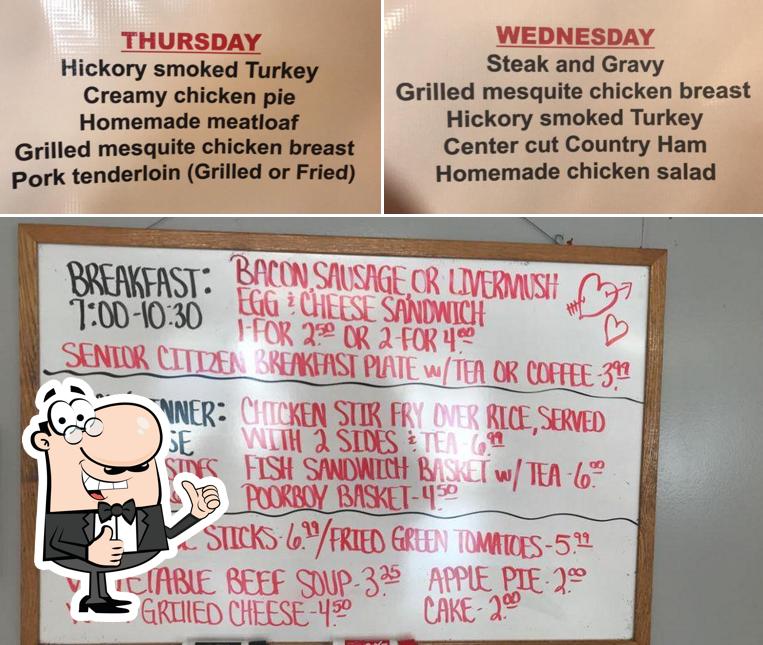 THURSDAY
Hickory smoked Turkey
Creamy chicken pie
Homemade meatloaf
Grilled mesquite chicken breast
Pork tenderloin (Grilled or Fried)
WEDNESDAY
Steak and Gravy
Grilled mesquite chicken breast
Hickory smoked Turkey
Center cut Country Ham
Homemade chicken salad
BREAKFAST: BACON, SAUSAGE, OR LIVERMUSH
7:00-10:30 EGG & CHEESE SANDWICH
1-FOR 2.50 OR 2-FOR 4.00
SENIOR CITIZEN BREAKFAST PLATE w/TEA OR COFFEE-3.99
NNER: CHICKEN STIR FRY OVER RICE, SERVED
SE WITH 2 SIDES & TEA-6.99
SIDES FISH SANDWICH BASKET w/TEA-6.00
POORBOY BASKET-4.50
STICKS-6.99/FRIED GREEN TOMATOES-5.99
ETABLE BEEF SOUP-3.25 APPLE PIE-2.00
GRILLED CHEESE-4.50 CAKE-2.00